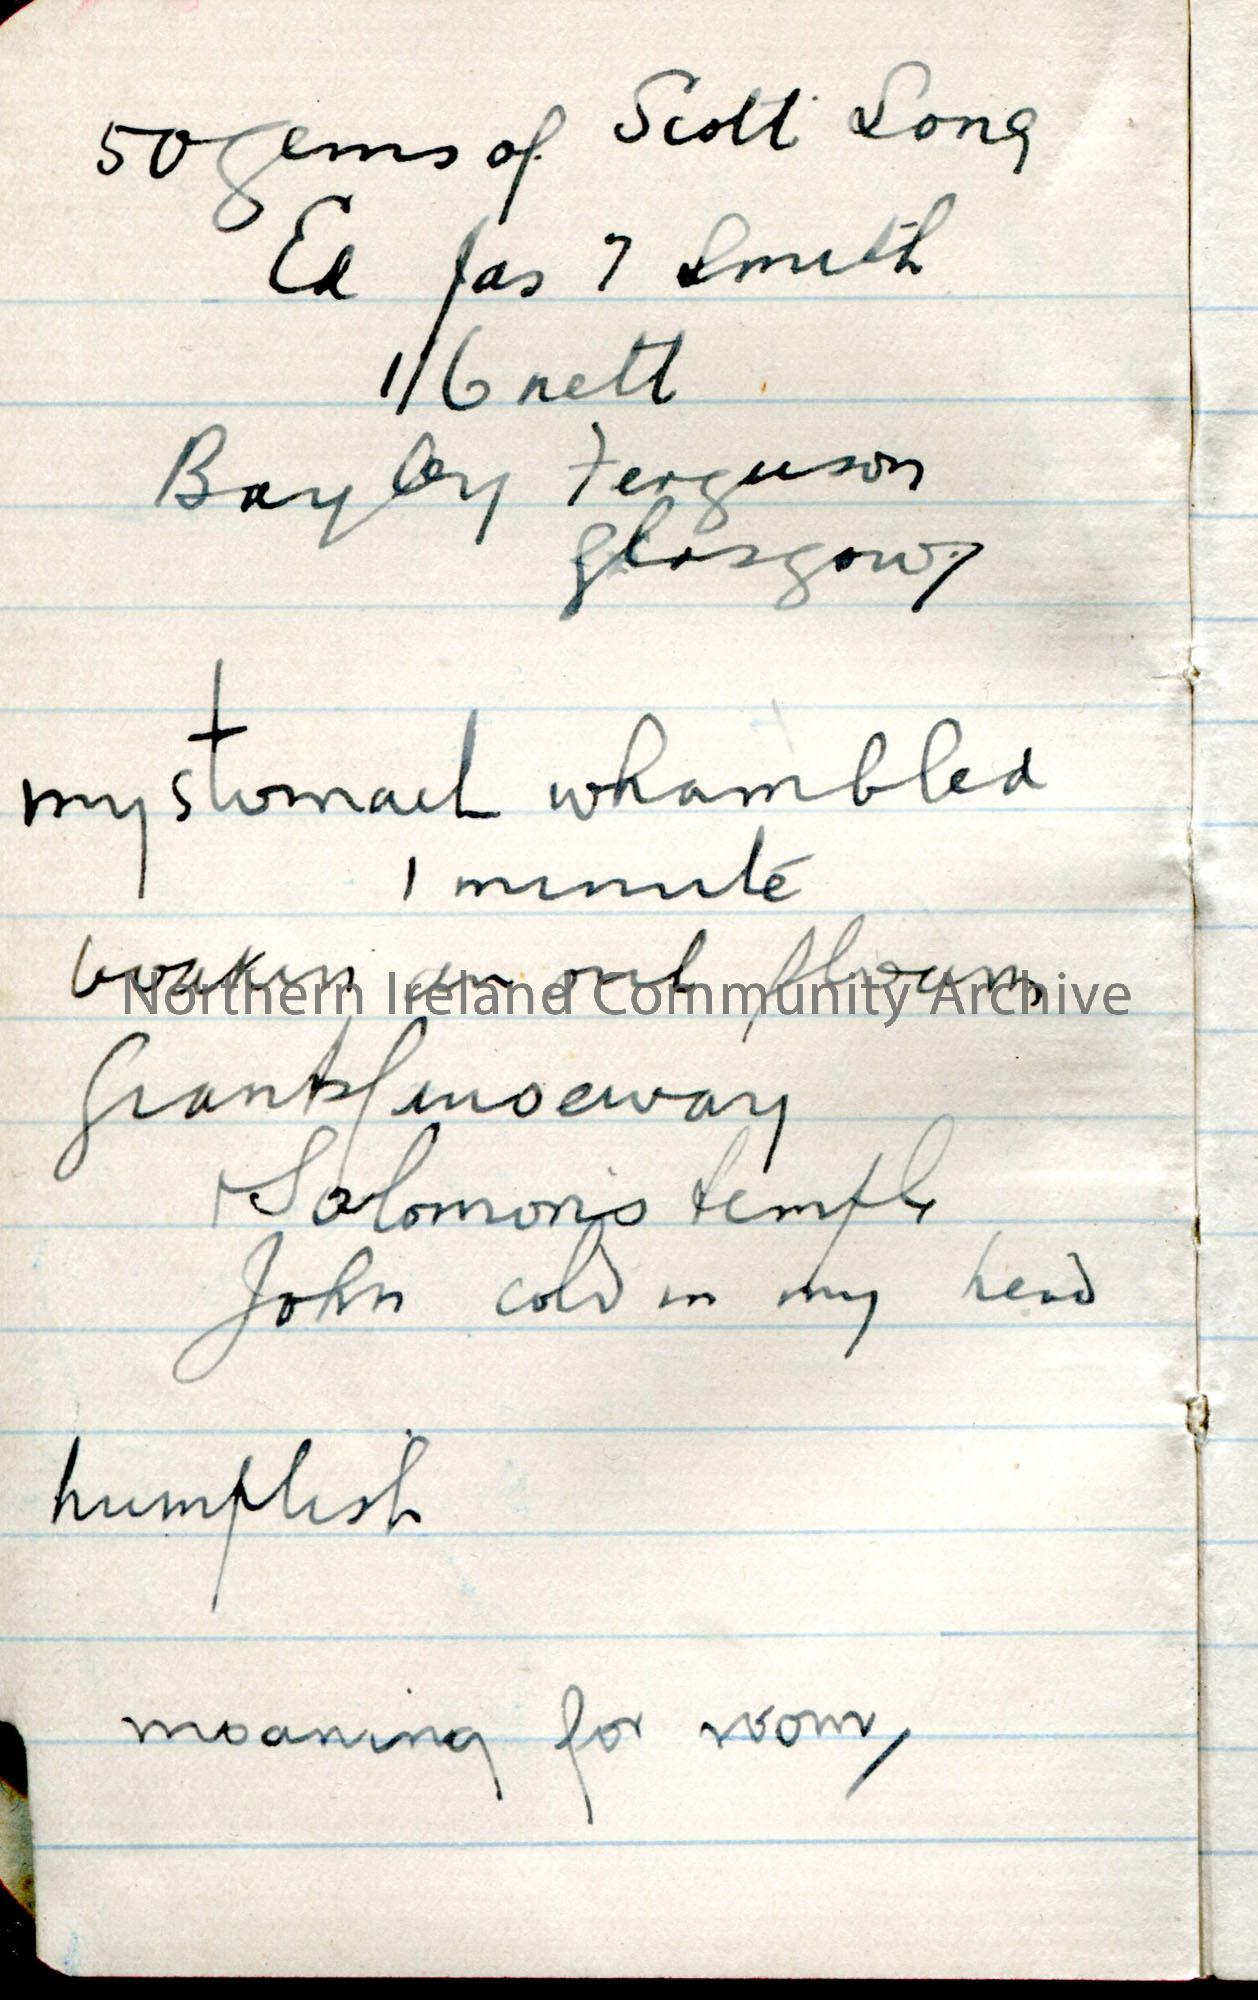 50 gems of Scott Song
Ed Jas 7 Smith
1/6 nett
Bayley Ferguson
Glasgow
my stomach whambled
1 minute
Northern Ireland Community Archive
Solomon's temple
John cold in my head
humplish
moaning for room